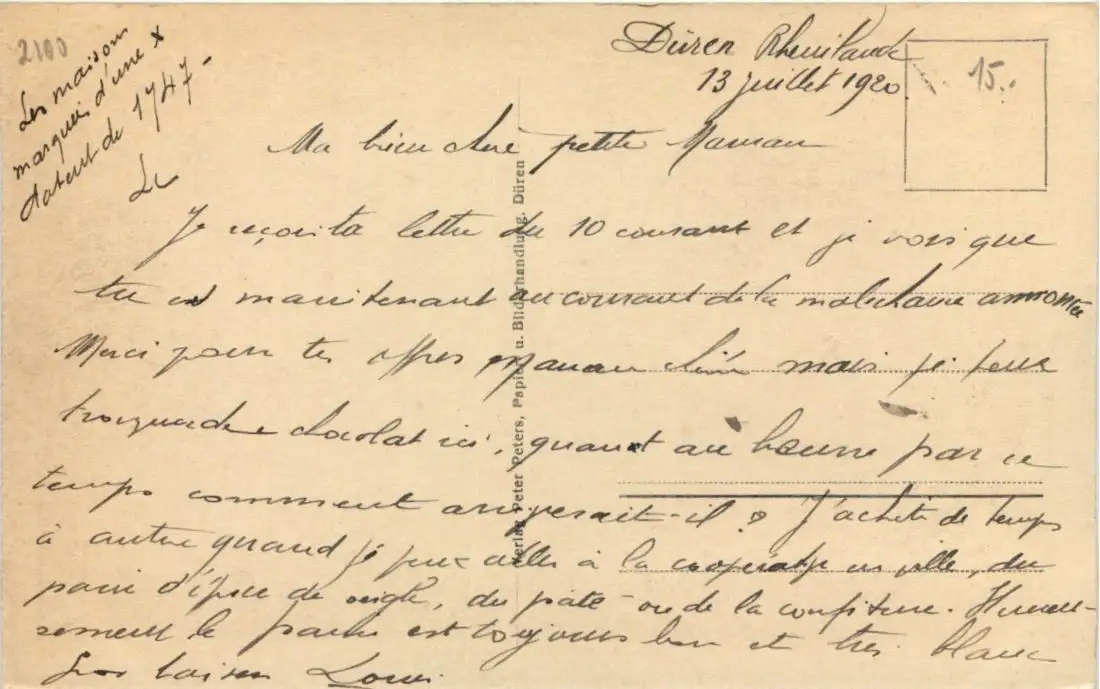 2100
Les maisons
marquées d'une x
datent de 1747-
Düren Rheinlande
13 juillet 1920
15..
Ma bien chère petite Maman
Je reçois ta lettre du 10 courant et je vois que
tu es maintenant au courant de la malechance annoncée
Merci pour tes offres maman chérie mais je peux
chocolat ici, quant au beurre par ce
temps comment arriverait-il ? J'achète de temps
à autre quand je peux aller à la coopérative en ville, du
pain d'épice de seigle, du pâté ou de la confiture. Heureu-
sement le pain est toujours bon et très blanc
Gros baisers Louis
Verlag Peter Peters, Papier u. Bilderhandlung. Düren